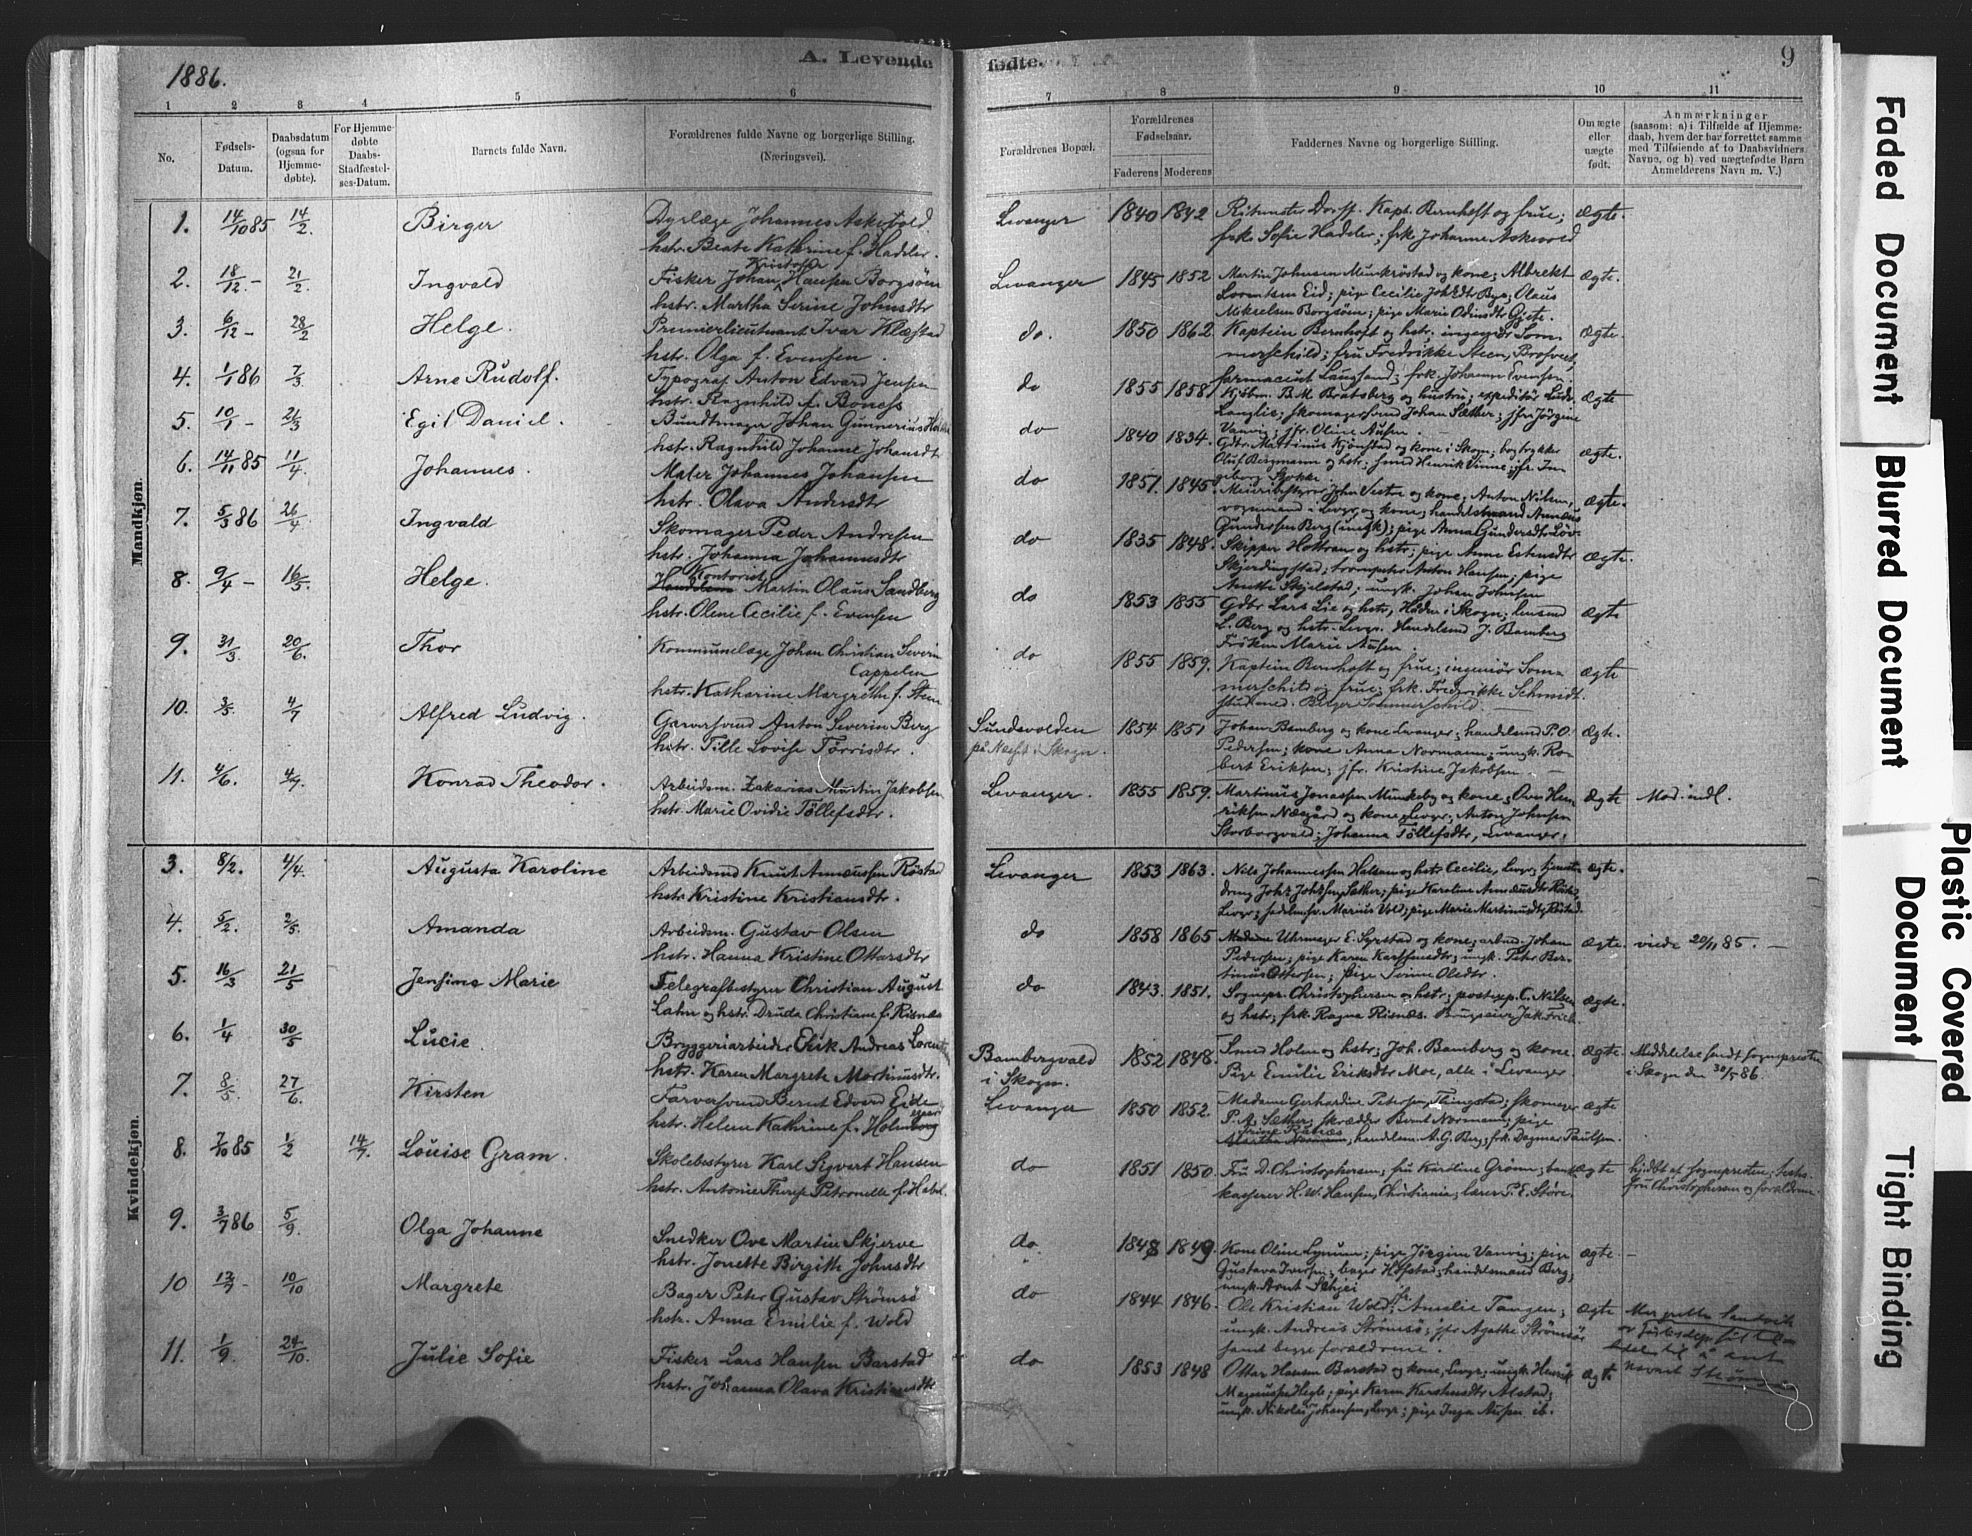 1886.
A. Levende
fødte.
9
1 2 3 4 5 6 7 8 9 10 11
No.
Fødsels-
Datum.
Daabsdatum
(ogsaa for
Hjemme-
døbte).
For Hjemme-
døbte
Daabs-
Stadfæstel-
ses-Datum.
Barnets fulde Navn.
Forældrenes fulde Navne og borgerlige Stilling.
(Næringsvei).
Forældrenes Bopæl.
Forældrenes
Fødselsaar.
Faderens Moderens
Faddernes Navne og borgerlige Stilling.
Om ægte
eller
uægte
født.
Anmærkninger
(saasom: a) i Tilfælde af Hjemme-
daab, hvem der har forrettet samme
med Tilføiende af to Daabsvidners
Navne, og b) ved uægtefødte Børn
Anmelderens Navn m. V.)
Mandkjøn.
1. 14/10 85 14/2. Birger Dyrlæge Johannes Askevold Levanger 1840 1842 Ritmester Dorff. Kapt. Bernhoft og frue; ægte.
hstr. Beate Kathrine f. Hadeler. frk. Sofie Hadeler; frk. Johanne Askevold
2. 18/12. - 21/2. Ingvald Fisker Johan Kristofer Hansen Borgsöm Levanger 1845 1852 Martin Johnsen Munkröstad og kone; Albrekt ægte.
hstr. Martha Serine Johnsdtr Lorentsen Eid; pige Cecilie Bye; Olaus
Mikselsen Borgsöm; pige Marie Odinsdtr Gjete.
3. 6/12 - 28/2 Helge. Premierlieutnant Ivar Klæstad do. 1850 1862 Kaptein Bernhoft og hstr. ingeniör Som ægte.
hstr. Olga f. Evensen. merschild; fru Fredrikke Steen,
farmaceut frk. Johanne Evensen.
4. 1/1 86 7/3 Arne Rudolf. Typograf Anton Edvard Jensen do 1855 1858 Kjöbm. B. M. Bratsberg og hustru; expeditör ægte
hstr. Ragnhild f. Boness Langlie; skomagersvend Johan Sæther; jfr Jörgine
Vanvig; jfr. Oline Ausen.
5. 10/1 - 21/3 Egil Daniel. Bundtmager Johan Gunnerius do 1840 1834. Gdbr. Mattinus Kjönstad og kone i Skogn; bogtrykker ægte.
hstr. Ragnhild Johanne Johansdtr Oluf Bergmann og hstr; smed Henrik Vinne; jfr. In
geborg Stokke.
6. 14/11 85 11/4. Johannes. Maler Johannes Johansen do 1851. 1845. John og kone; Anton Nilsen, ægte.
hstr. Olava Andersdtr vognmand i Levgr og kone; handelsmand
Gundersen Berg (ungk); pige Anna Gundersdtr
7. 5/3 86 26/4. Ingvald Skomager Peder Andresen do 1835 1848. Skipper Hottran og hstr; pige Anne Estensdtr ægte.
hstr. Johanna Johannesdtr Skjerdingstad; trompeter Anton Hansen; pige
Skjelstad; ungk. Johan Johnsen
8. 9/4 - 16/5. Helge. Kontorist Martin Olaus Sandberg do 1853 1855 Gdbr Lars Lie og hstr, i Skogn; ægte
hstr. Olene Cecilie f. Evensen L. Berg og hstr. Levgr. Handelsmd J. Bamberg
Fröken Marie Ausen.
9. 31/3. 20/6. Thor Kommunelæge Johan Christian Severin do 1855 1859. Kaptein Bernhoft og frue; ingeniör Som ægte
Cappelen
hstr. Katharine Margrethe f. Steen merschild og frue; frk. Fredrikke Schmidt.
stud. med. Birger Sommerschild.
10. 3/5. 4/7 Alfred Ludvig. Garversvend Anton Severin Berg Sundsvolden 1854 1851 Johan Bamberg og kone Levanger; handelsmd P. O. ægte.
hstr. Tille Lovise Torrisdtr. på Næsset i Skogn. Pedersen; kone Anna Normann; ungk. Ro
bert Eriksen; jfr. Kristine Jakobsen
11. 4/6. 4/7. Konrad Theodor. Arbeidsm. Zakarias Martin Jakobsen Levanger. 1855 1859. Martinus Jonassen Munkeby og kone; Ove Hen ægte Mod. indl.
hstr. Marie Ovidie Töllefsdtr. riksen Næsgård og kone, Levgr, Anton Johnsen
Storborgvald; Johanna Töllefsdtr, Levanger.
Kvindekjøn.
3. 8/2. 4/4. Augusta Karoline Arbeidsmd Knut Annæussen Röstad Levanger 1853 1863. Nils Johannessen Halsan og hstr Cecilie, Levgr; tjeneste ægte.
hstr. Kristine Kristiansdtr. dreng Sæther; pige Karoline Annæusdtr
Levgr; Marius Vold; pige Marie Martinusdtr Röstad.
4. 5/2. 2/5. Amanda Arbeidsm. Gustav Olsen do 1858 1865 Uhrmager E. Syrstad og kone; arbmd. Johan ægte. viede 20/11 85. -
hstr. Hanna Kristine Ottersdtr Pedersen; pige Karen ungk. Peter Ber-
tinus Ottersen; pige Serine Olsdtr.
5. 16/3 21/5 Jensine Marie Telegrafbestyrer Christian August do 1843. 1851. Sognepr. Christophersen og hstr; postexp. C. Nilsen ægte.
Lahn og hstr. Druda Christiane f. Risnæs og hstr; frk. Ragna Risnæs.
6. 1/4 30/5 Lucie. Bryggeriarbeider Erik Andreas Bambergvald 1852 1848. Smed Holm og hstr; Joh. Bamberg og kone. ægte. Meddelelse sendt sognepresten
hstr. Karen Margrete Mortinusdtr. i Skogn. Pige Emilie Eriksdtr Moe, alle i Levanger. i Skogn den 30/5 86.
7. 8/5. 27/6. Kirsten Farversvend Bernt Edvard Eide Levanger 1850 1852. Madame Gerhardine Petersen, Thingstad; skomager ægte
hstr. Helen Kathrine f. Holmberg P. A. Sæther; skrædder Bernt Normann; pige
handelsm. A. G. Berg; frk. Dagmar Paulsen.
8. 7/10 85 1/2 14/7. Louise Gram. Skolebestyrer Karl Sigvart Hansen do 1851 1850. Fru D. Christophersen; fru Karoline Grönn; bank ægte hjdbt af sognepresten; testes.
hstr. Antonie Therese Petronelle f. kasserer H. W. Hansen, Christiania; lærer P. E. Störe. fru Christophersen og forældrene.
9. 3/7 86 5/9 Olga Johanne Snedker Ove Martin Skjerve do. 1848 1849. Kone Oline Lynum; pige Jörgine Vanvig; pige ægte. -
hstr. Jonette Birgitte Johnsdtr Gustava Iversen; bager Hofstad; handelsmand Berg;
ungk. Arnt
10 13/7 - 10/10 Margrete Bager Peter Gustav Strömsö do 1844 1846. Ole Kristian Wold; jfr. Amalie Tangen; ægte
hstr. Anna Emilie f. Wold ungk. Andreas Strömsö; jfr Agathe Strömsör
samt begge forældrene.
11. 1/9. 24/10. Julie Sofie Fisker Lars Hansen Barstad do 1853 1848 Ottar Hansen Barstad og kone, Levgr; ungk. Henrik ægte
hstr. Johanna Olava Kristiansdtr Magnussen Hegle; pige Karen Karstensdtr Alstad;
ungk. Nikolai Johansen, Levgr; pige Inga Ausen ib.
Faded Document
Blurred Document
Plastic Covered
Document
Tight Binding